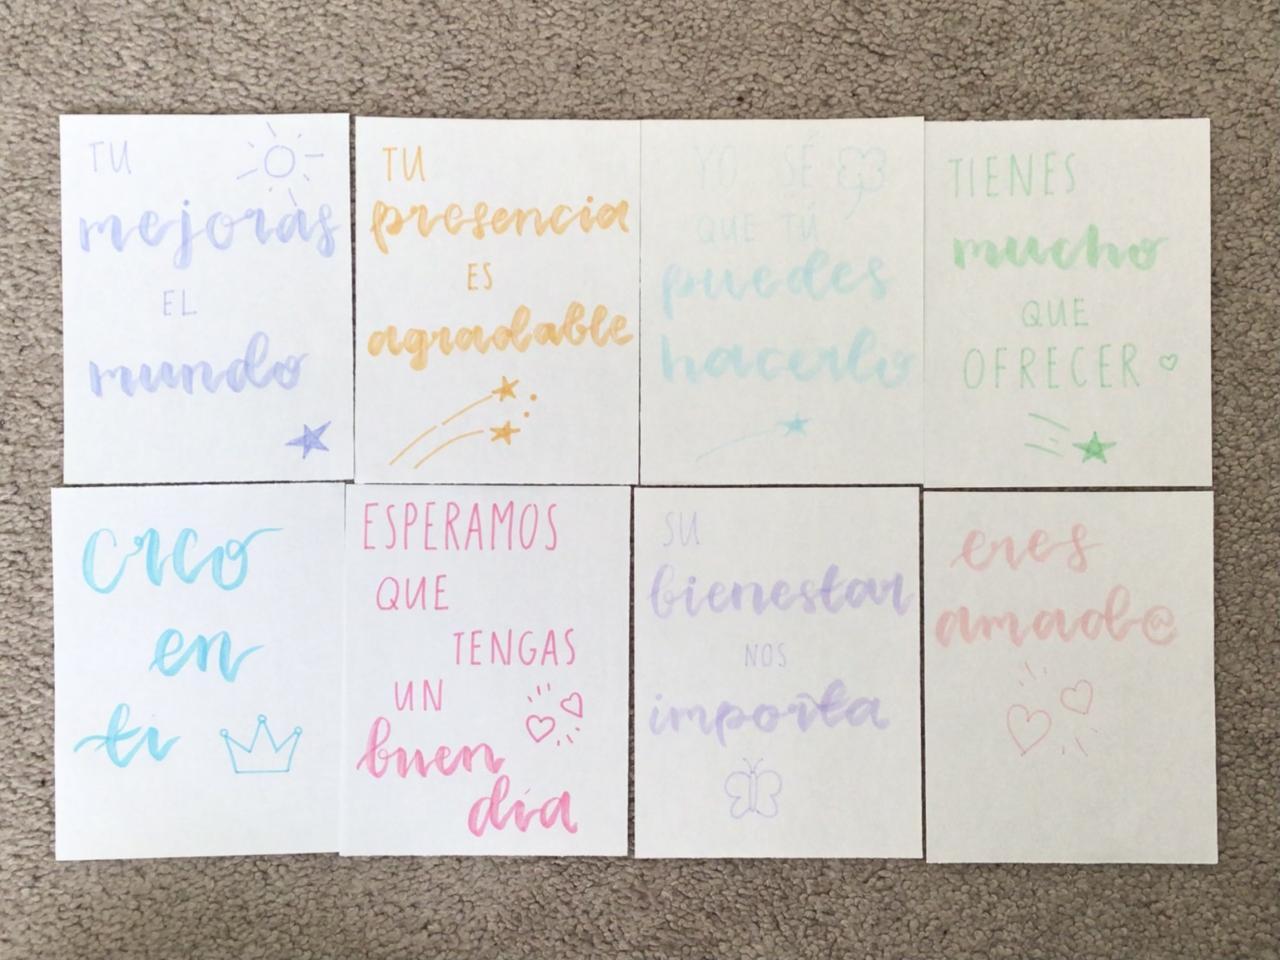 TU
mejoras
EL
mundo
TU
presencia
ES
agradable
YO SÉ
QUE TÚ
puedes
hacerlo
TIENES
mucho
QUE
OFRECER
creo
en
ti
ESPERAMOS
QUE
TENGAS
UN
buen
día
SU
bienestar
NOS
importa
eres
amad@